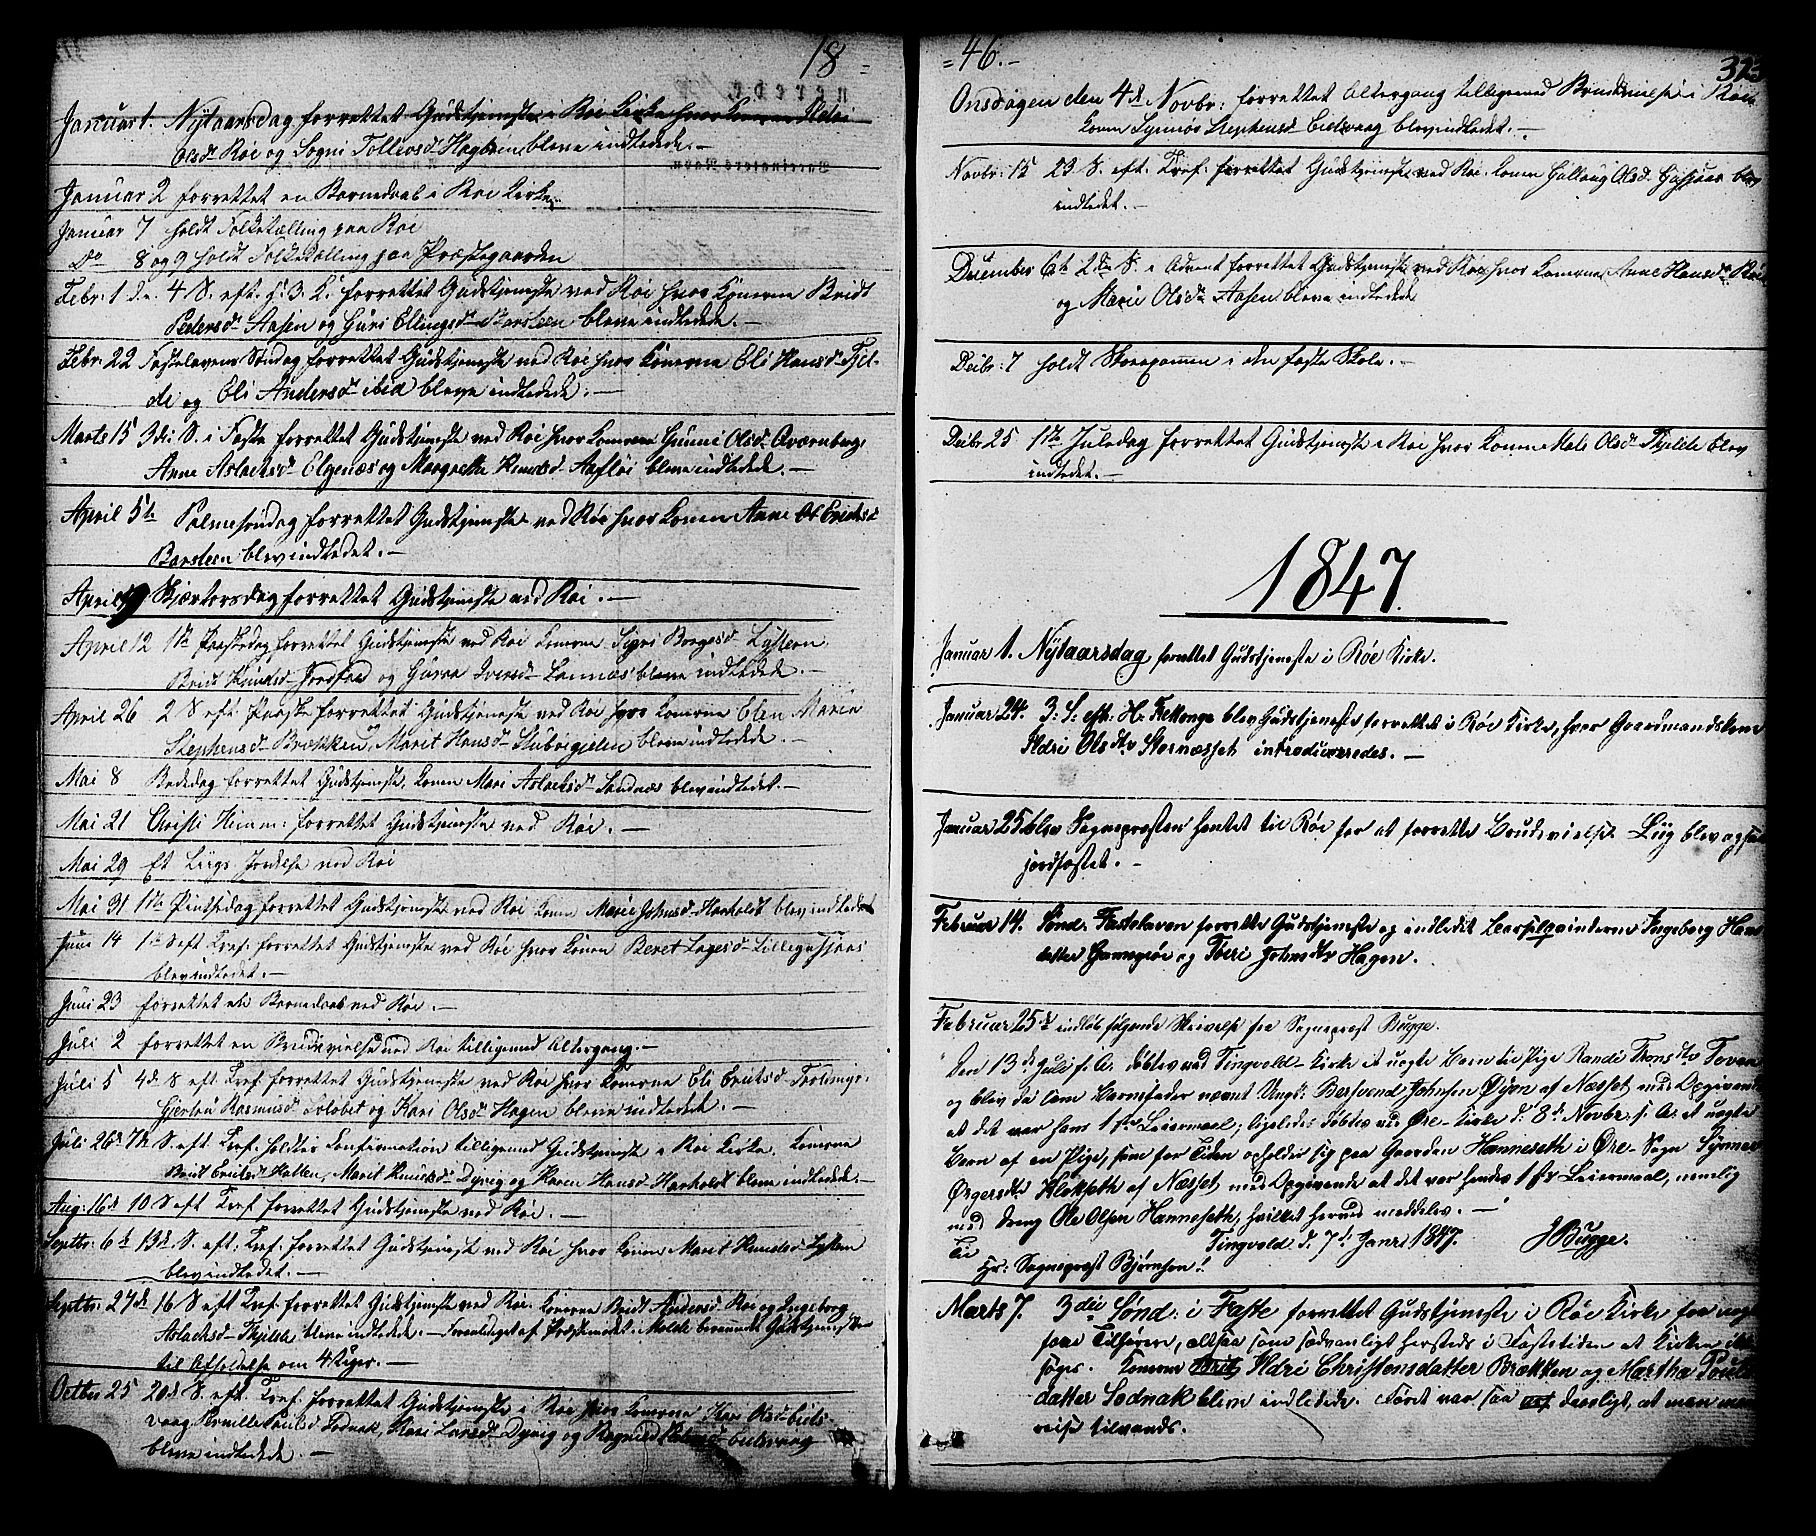 18
Januar 1. Nÿtaarsdag forrettet Gudstjeneste i Røe Kirke hvor Konerne
Olsd. Røe og Sogni Tollevsd. Hagbøen bleve indledede. —
Januar 2 forrettet en Barnedaab i Røe Kirke.
Januar 7 holdt Folketælling paa Røe
Do 8 og 9 holdt Folketælling paa Præstegaarden
Febr: 1 4 S. eft. H. 3. K. forrettet Gudstjeneste ved Røe hvor Konerne Bridt
Pedersd. Aasen og Guri Ellingsd. Barsteen bleve indledede. —
Febr. 22 Fastelavens Søndag forrettet Gudstjeneste ved Røe hvor Konerne Eli Hansd. Fjel-
de og Eli Andersd. ibid bleve indledede. —
Marts 15 3die S. i Faste forrettet Gudstjeneste ved Røe hvor Konerne Gunni Olsd. Qværnberg,
Anne Aslachsd. Elgenæs og Margrethe Knudsd. bleve indledede. —
April 5te Palmesøndag forrettet Gudstjeneste ved Røe hvor Konen Anne Ericksd.
Barsteen blev indledet. —
April 9 Skjærtorsdag forrettet Gudstjeneste ved Røe. —
April 12 1ste Paaskedag forrettet Gudstjeneste ved Røe Konerne Sigri Borgesd. Lysteen
Bridt Knudsd. og Guroe Iversd. bleve indledede. —
April 26 2 S. eft. Paaske forrettet Gudstjeneste ved Røe hvor Konerne Elen Maria
Stephensd. Brækken og Marit Hansd. Stubøegjelen bleve indledede. —
Mai 8 Bededag forrettet Gudstjeneste, Konen Mari Aslachsd. Sandnæs blev indledet. —
Mai 21 Christi Himm: forrettet Gudstjeneste ved Røe. —
Mai 29 Et Liigs Jordelse ved Røe
Mai 31 1ste Pintsedag forrettet Gudstjeneste ved Røe Konen Marie Johnsd. Harholdt blev indledet
Juni 14 1ste S. eft Tref. forrettet Gudstjeneste ved Røe hvor Konen Beret Lagesd. Lillegussjaas
blev indledet. —
Juni 23 forrettet en Barnedaab ved Røe. —
Juli 2 forrettet en Brudevielse ved Røe tilligemed Altergang. —
Juli 5 4de S. eft. Tref. forrettet Gudstjeneste ved Røe hvor Konerne Eli Erichsd.
Gjertru Rasmusd. og Kari Olsd. Hagen bleve indledede. —
Juli 26de 7de S. eft. Tref. holdes Confirmation tilligemed Gudstjeneste i Røe Kirke. Konerne
Brit Erichsd. Hallen, Marit Knudsd. Dyrvig og Karen Hansd. Harholdt bleve indledede. —
Aug: 16de 10 S. eft Tref. forrettet Gudstjeneste ved Røe. —
Septbr. 6te 13de S. eft. Tref. forrettet Gudstjeneste ved Røe hvor Konen Marit Knudsd. Lysteen
blev indledet. —
Septbr. 27de 16 S. eft Tref. forrettet Gudstjeneste ved Røe. Konerne Bridt Andersd. Røe og Ingeborg
Aslachsd. Fjelde bleve indledede. — Foranlediget af Præstemødet i Molde Gudstjenesten
til Afholdelse om 4 Uger. —
Octbr 25 20de S. eft. Tref. forrettet Gudstjeneste i Røe hvor Konerne Kari Olsd. Eids-
vaag Pernille Sodnak, Kari Larsd. Dyrvig og Eidsvaag
bleve indledede. —
46. —
323
Onsdagen den 4de Novbr: forrettet Altergang tilligemed Brudevielse i Røe.
Konen Synnøv Stephensd. Eidsvaag blev indledet. —
Novbr: 15 23 S. eft. Tref. forrettet Gudstjeneste ved Røe. Konen Gallaug Olsd. Gussjaas blev
indledet. —
December 6te 2den S. i Advent forrettet Gudstjeneste ved Røe hvor Konerne Anne Hansd. Røe
og Marie Olsd. Aasen bleve indledede
Decbr: 7 holdt Skoleexamen i den faste Skole. —
Decbr: 25 1ste Juledag forrettet Gudstjeneste i Røe hvor Konen Olsd. Fjelde blev
indledet. —
1847.
Januar 1. Nytaarsdag forrettet Gudstjeneste i Røe Kirke.
Januar 24. 3. S. eft: H. Trekonge blev Gudstjeneste forrettet i Røe Kirke, hvor Gaardmandskone
Ildri Olsdtr Stornæsset introduceredes. —
Januar 25 blev Sognepræsten hentet til Røe for at forrette Brudevielse. Liig blev ogsaa
jordfæstet. —
Februar 14. Sønd. Fastelaven forrette Gudstjeneste og indledet Barselqvinderne Ingeborg Hans
datter og Toeri Johnsdtr Hagen.
Februar 25de indløb følgende Skrivelse fra Sognepræst Bugge.
"Den 13de Juli f. A. døbtes ved Tingvold-Kirke et uægte Barn til Pige Randi Thronsdtr
og blev da som Barnefader nævnt Ungk: Berfvend Johnsen Øyen af Næsset med Opgivende
at det var hans 1ste Leiermaal; ligeledes døbtes ved Øre-Kirke d. 8de Novbr. f. A. et uægte
Barn af en Pige, som for Tiden opholder sig paa Gaarden Hanneseth i Øre-Sogn Synnøv
Øxgersdtr Klokseth af Næsset, med Opgivende at det var hendes 1ste Leiermaal, nemlig
med Dreng Ole Olsen Hanneseth; hvilket herved meddeles. —
Tingvold d. 7de Janr 1847. JBugge.
Til
Hr: Sognepræst Bjørnson!
Marts 7. 3die Sønd: i Faste forrettet Gudstjeneste i Røe Kirke for nogle
faae Tilhørere, altsaa som sædvanligt hersteds i Fastetiden at Kirken ikke
søges. Konerne Brit Ildri Christensdatter Brækken og Martha Pouls
datter Sodnak bleve indledede. Føret var saa daarligt, at man maatte
reise tilvands.